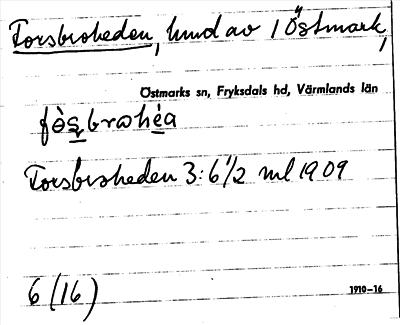 Torsbroheden, hmd av 1 Östmark,
Östmarks sn, Fryksdals hd, Värmlands län
fòs̱brohèa
Torsbroheden 3:6 1/2 ml 1909
6 (16)
1910-16